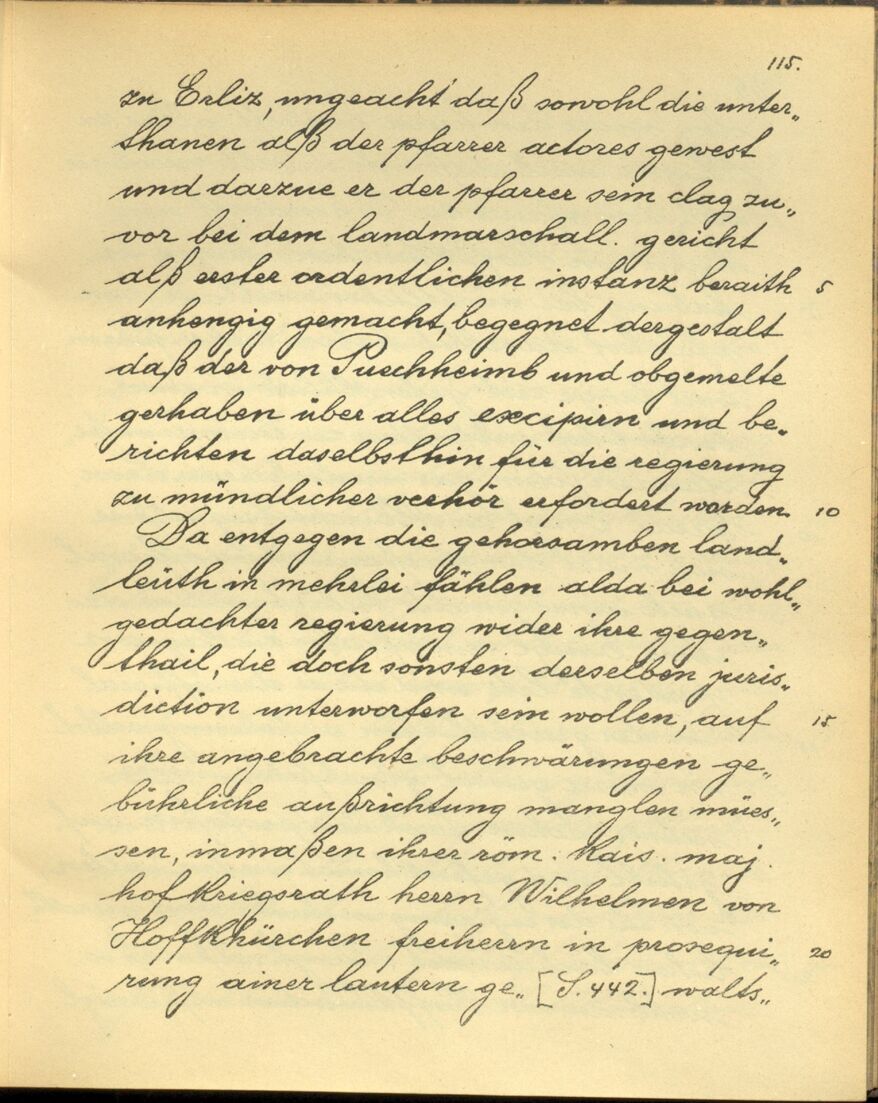 115.
zu Erliz, ungeacht daß sowohl die unter„
thanen alß der pfarrer actores gewest
und darzue er der pfarrer sein clag zu„
vor bei dem landmarschall. gericht
alß erster ordentlichen instanz beraith 5
anhengig gemacht, begegnet dergestalt
daß der von Puechheimb und obgemelte
gerhaben über alles excipirn und be„
richten daselbsthin für die regierung
zu mündlicher verhör erfordert worden. 10
Da entgegen die gehorsamben land„
leüth in mehrlei fählen alda bei wohl„
gedachter regierung wider ihre gegen„
thail, die doch sonsten derselben juris„
diction unterworfen sein wollen, auf 15
ihre angebrachte beschwärungen ge„
bührliche außrichtung manglen müeß„
sen, inmaßen ihrer röm. kais. maj.
hofkriegsrath herrn Wilhelmen von
Hoffkhürchen freiherrn in prosequi„ 20
rung ainer lautern ge„ [S. 442.] walts„